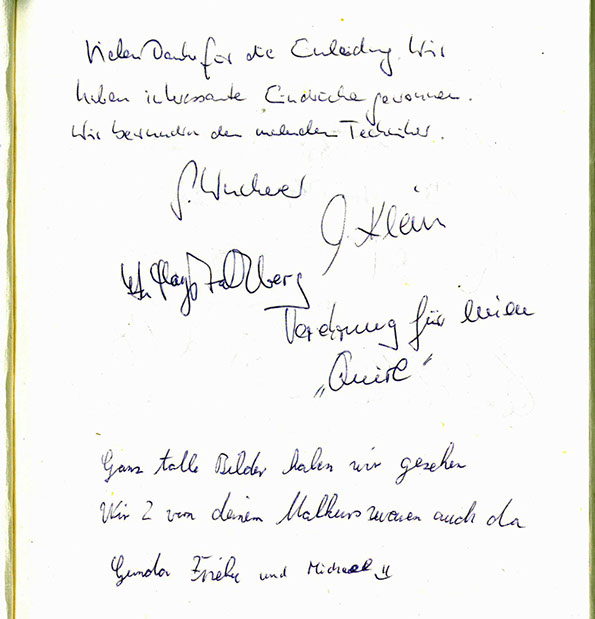 Vielen Dank für die Einladung. Wir
haben interessante Eindrücke gewonnen.
Wir bewundern den malenden Techniker.
G. Klein
für meinen
"Quirl"
Ganz tolle Bilder haben wir gesehen
Wir 2 von deinem Malkurs waren auch da
Gunda und Michael